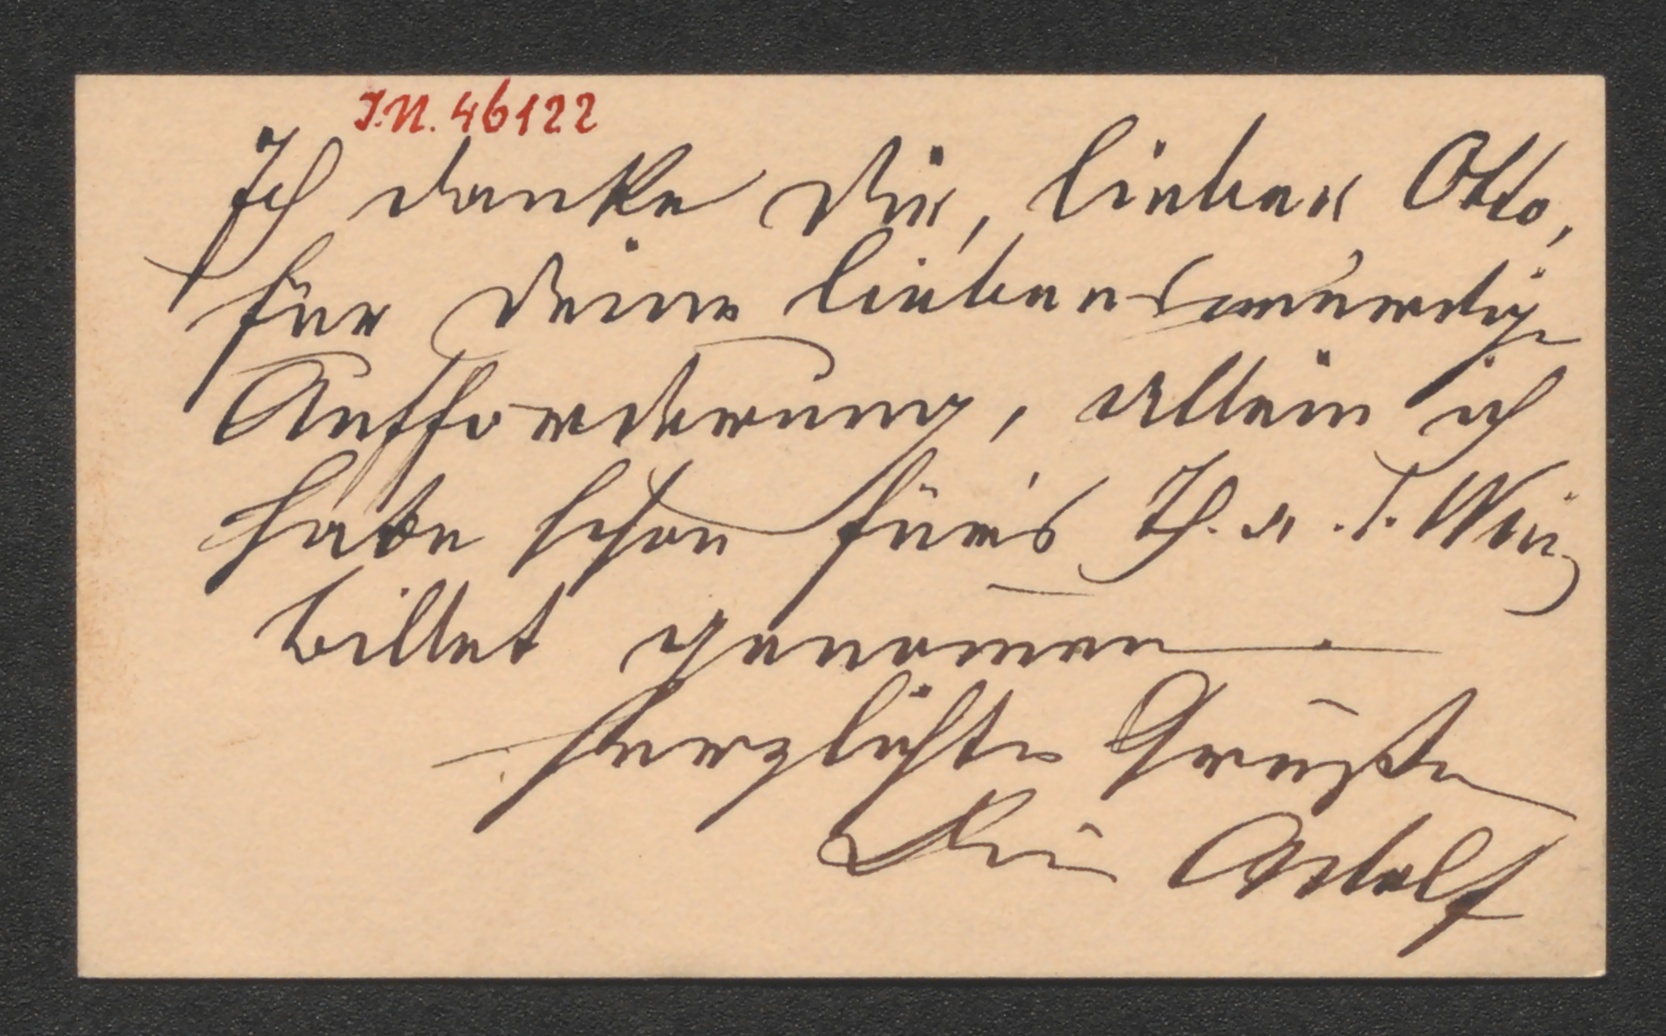 I.N. 46122
Ich danke Dir, lieber Otto,
für Deine liebenswürdige
Aufforderung, allein ich
habe schon für's Th. a. d. Wien
billet genommen
herzlichste Grüße
Dein Adolf